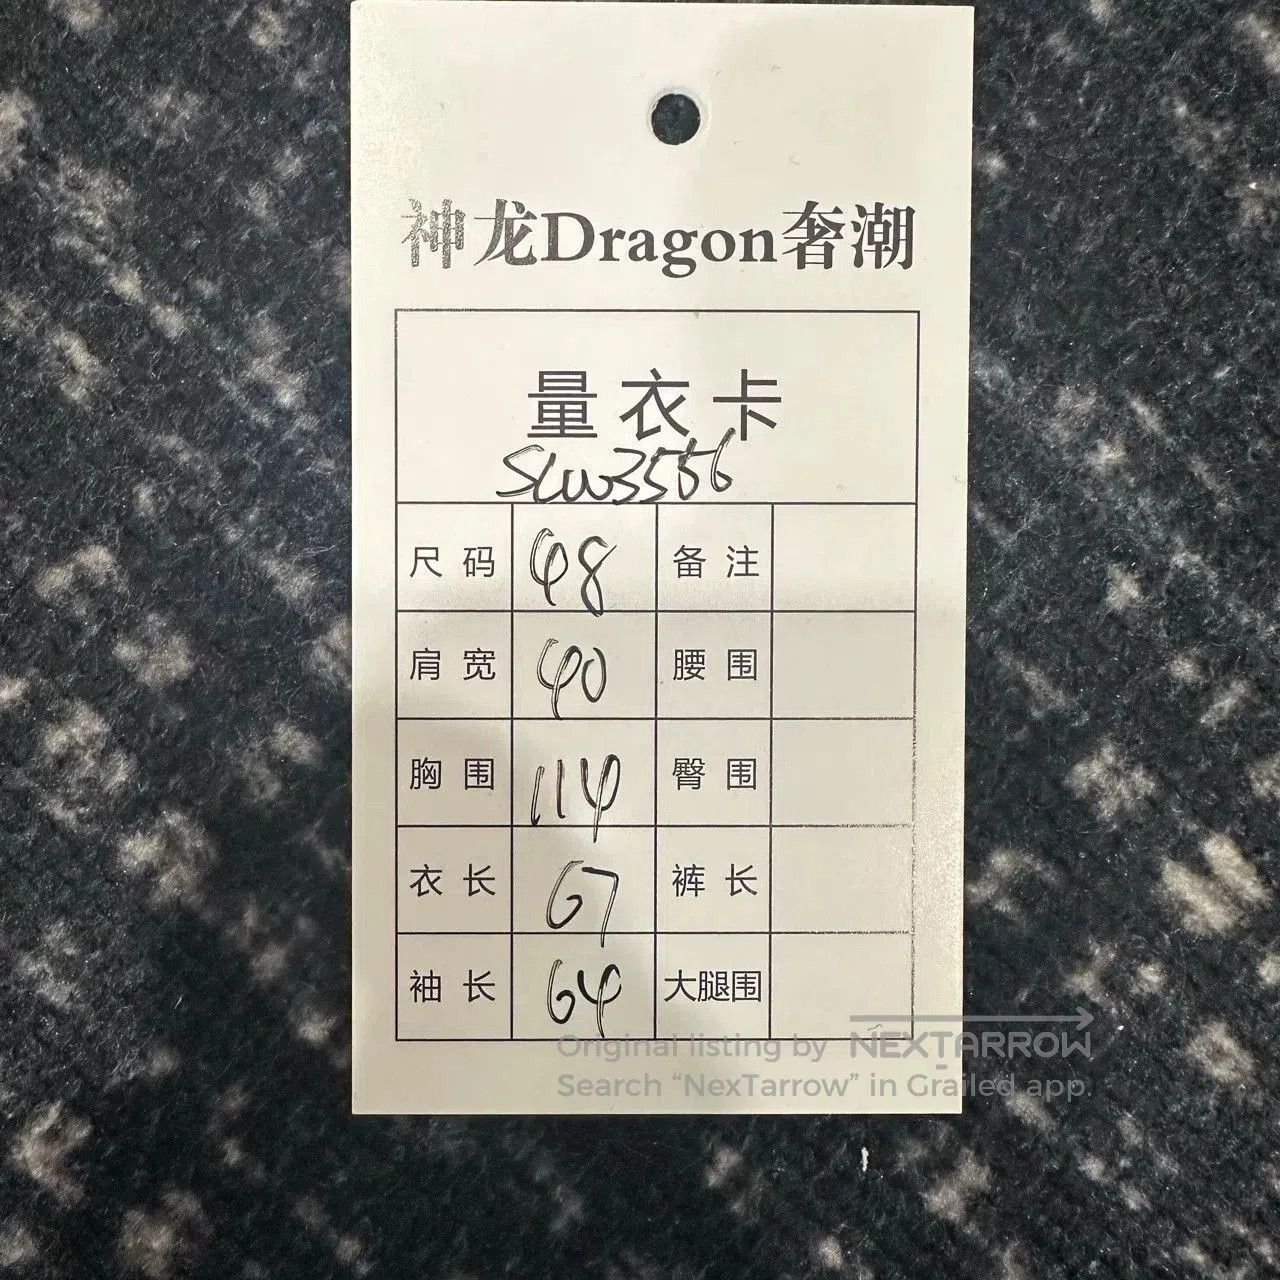 神龙Dragon奢潮
量衣卡
SLW3556
尺码 48 备注
肩宽 40 腰围
胸围 114 臀围
衣长 67 裤长
袖长 64 大腿围
Original listing by NEXTARROW
Search “NexTarrow” in Grailed app.